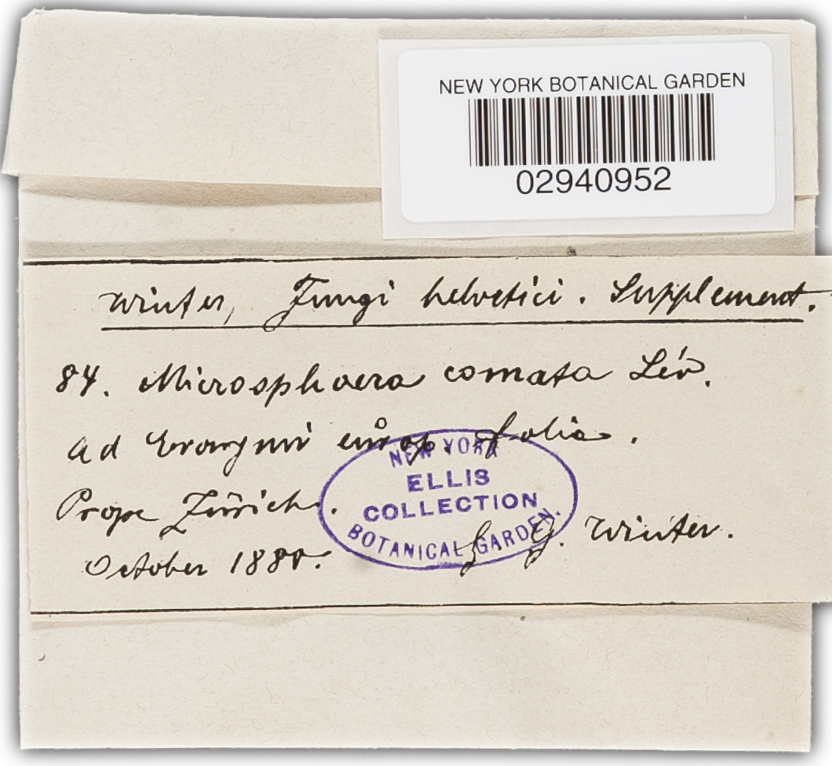 NEW YORK BOTANICAL GARDEN
02940952
Winter, Fungi helvetici. Supplement.
84. Microsphaera comata Lév.
ad Evonymi europ. folia.
Prope Zürich.
October 1880.
G. Winter.
NEW YORK
ELLIS
COLLECTION
BOTANICAL GARDEN.